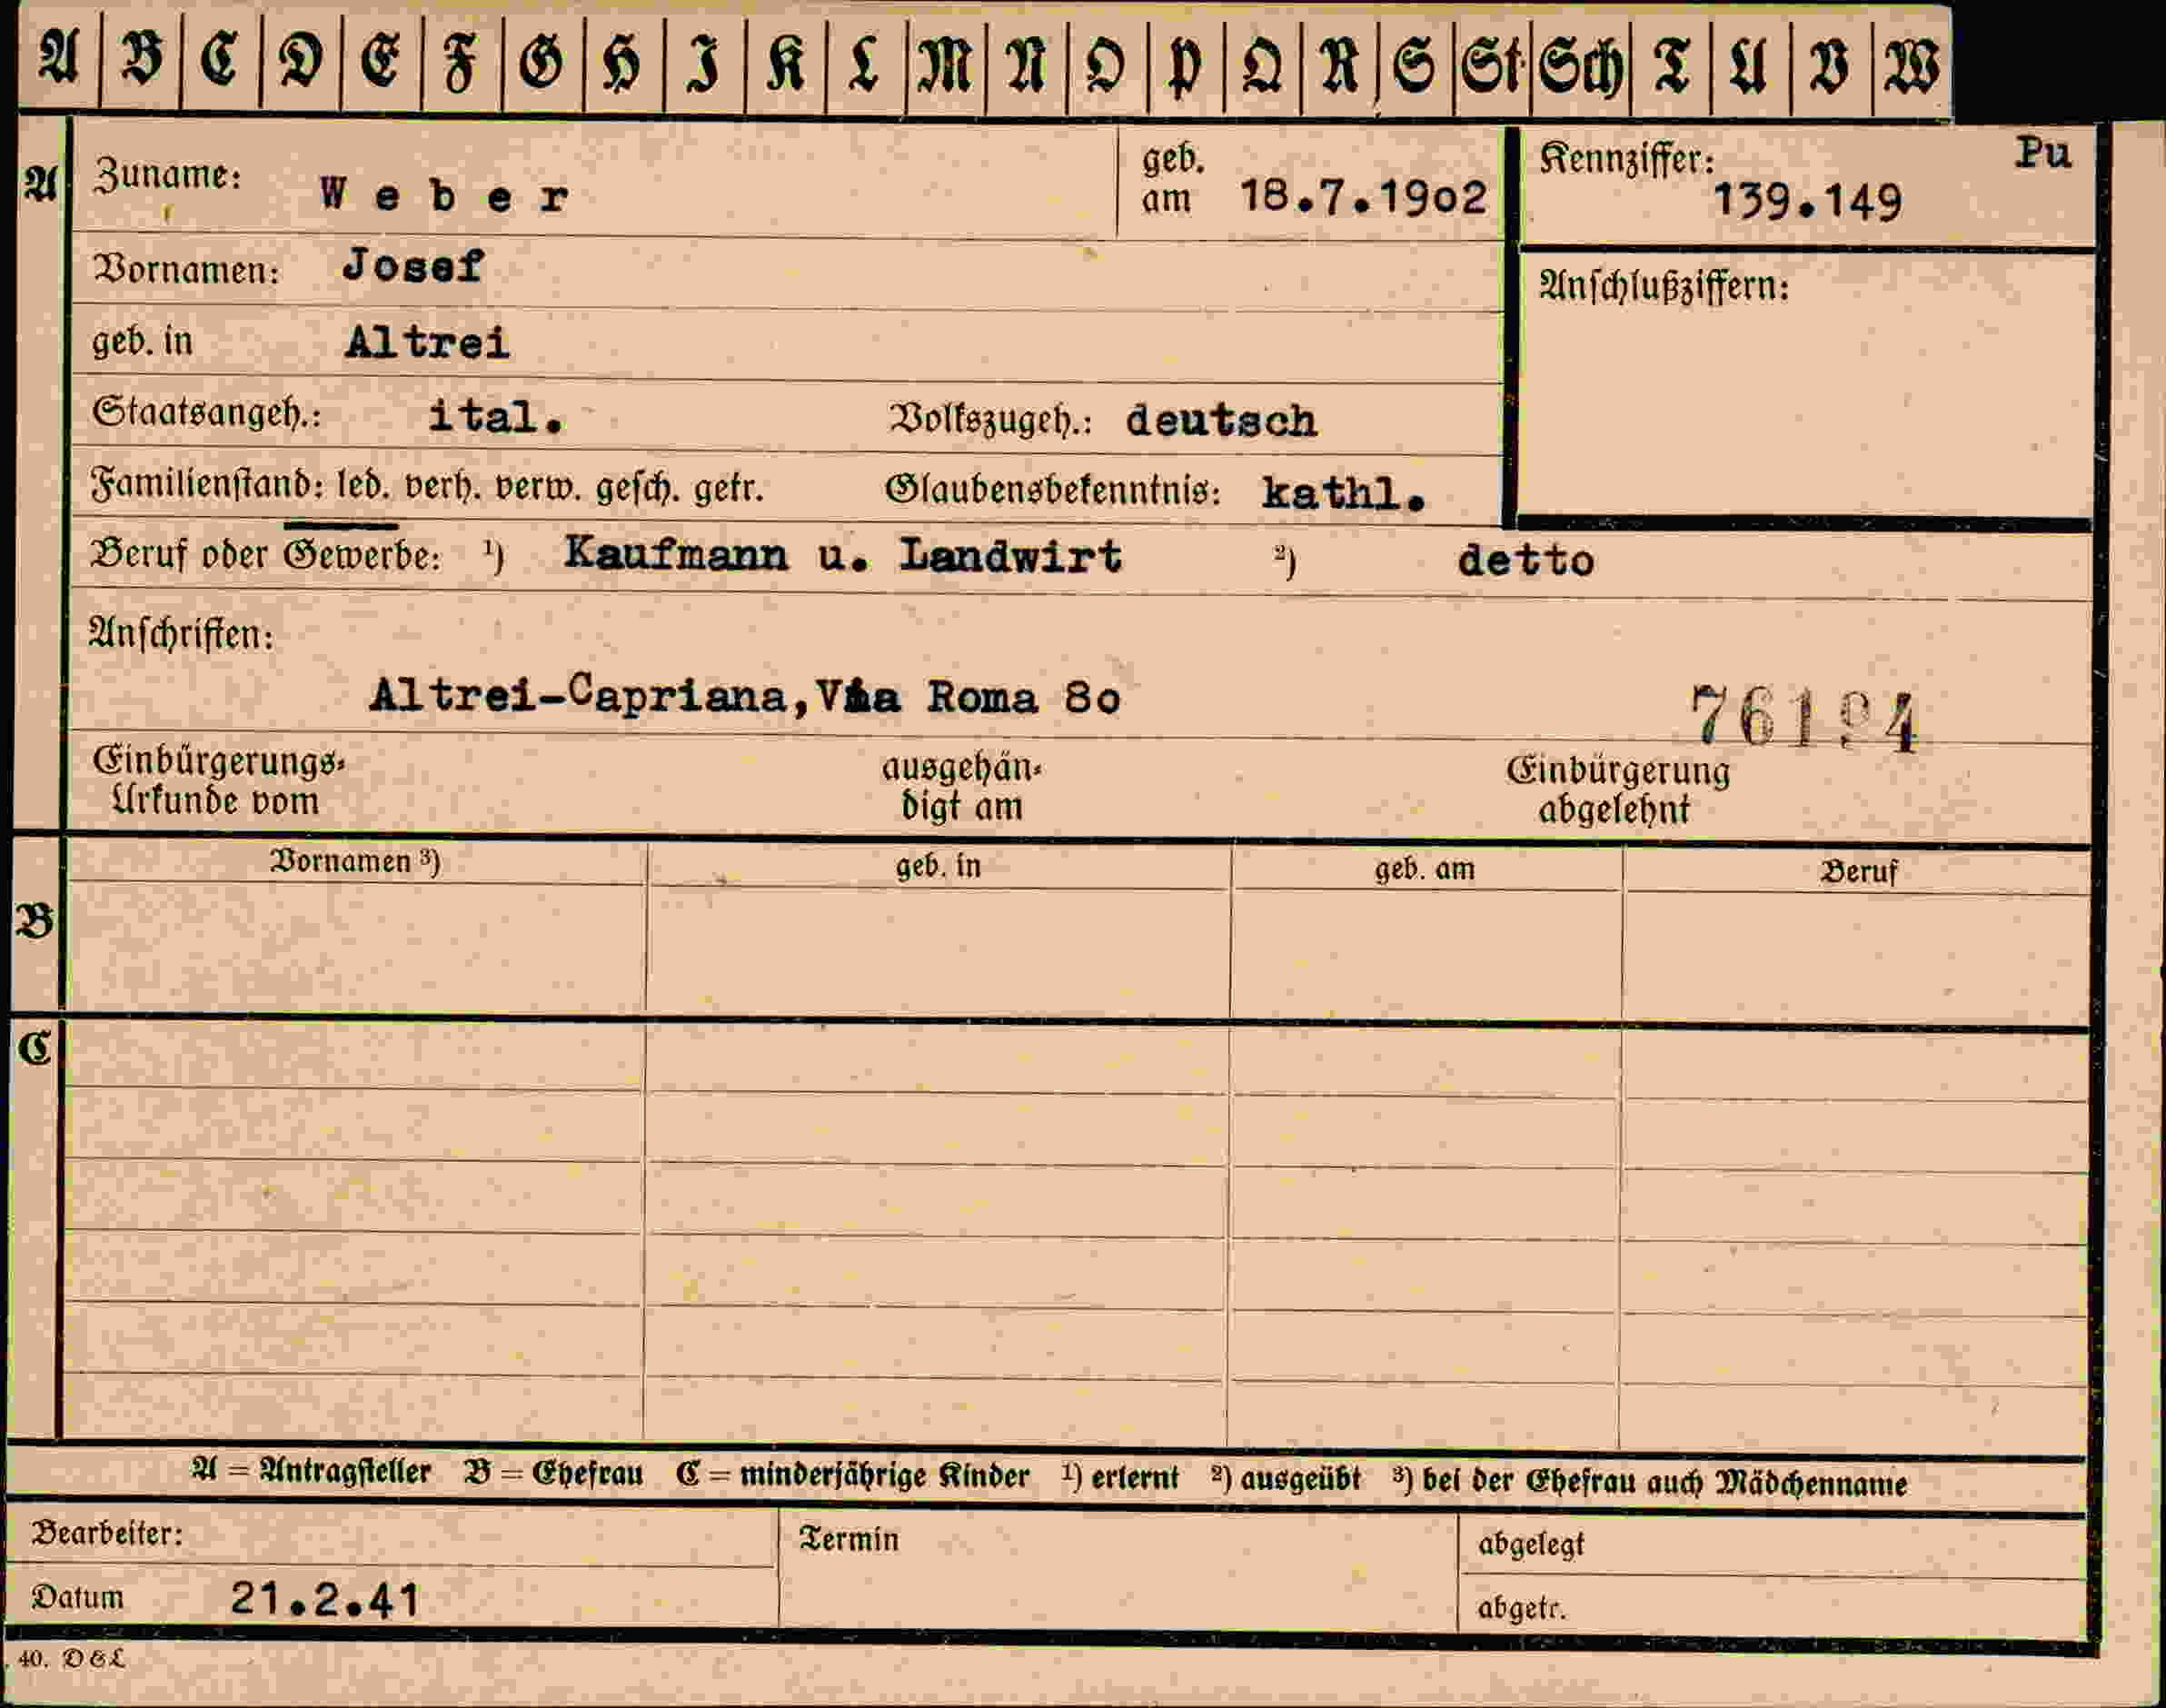 A B C D E F G H I K L M N O P Q R S St Sch T U V W
A Zuname: Weber geb. am 18.7.1902 Kennziffer: 139.149 Pu
Vornamen: Josef Anschlußziffern:
geb. in Altrei
Staatsangeh.: ital. Volkszugeh.: deutsch
Familienstand: led. verh. verw. gesch. getr. Glaubensbekenntnis: kathl.
Beruf oder Gewerbe: ¹) Kaufmann u. Landwirt ²) detto
Anschriften:
Altrei-Capriana, Via Roma 80
Einbürgerungs-Urkunde vom ausgehändigt am Einbürgerung abgelehnt
Vornamen ³) geb. in geb. am Beruf
B
C
A = Antragsteller B = Ehefrau C = minderjährige Kinder ¹) erlernt ²) ausgeübt ³) bei der Ehefrau auch Mädchenname
Bearbeiter: Termin abgelegt
Datum 21.2.41 abgetr.
40. D&L